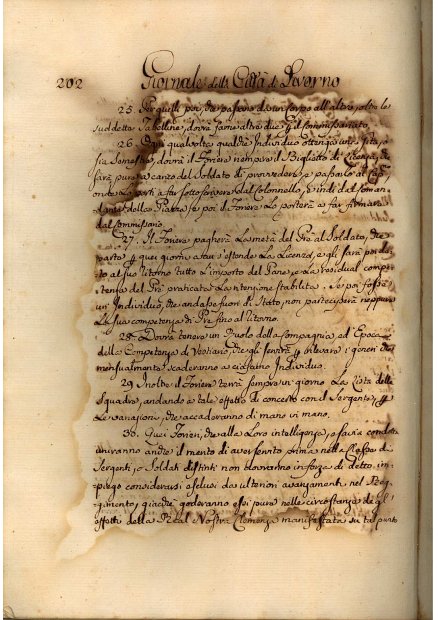 202 Giornale della Città di Livorno
25. Per quelli poi, che passano da un corpo all'altro, oltre le
suddette Tabelline, dovrà farne altre due il commissariato
26. Ogni qualvolta qualche Individuo ottenga un
sia Semestre, dovrà il Foriere riempire il Biglietto di Licenza, e
sarà pura a carico del Soldato di provvedere, e passarlo al
onde Lo porti a far sottoscrivere dal Colonnello, e indi dal coman
dante della Piazza, e poi il Foriere Lo porterà a far firmare
dal commissario.
27. Il Foriere pagherà La metà del Prà al Soldato, che
parte quei giorni a cui s'estende La Licenza, e gli sarà
al suo ritorno tutto L'importo del Pane, e La residual compe
tenza del Prà praticata La ritenzione stabilita. Se poi fosse
un Individuo, che andasse fuori di Stato, non parteciperà neppure
La sua competenza di Prà sino al ritorno.
28. Dovrà tenere un Ruolo della Compagnia, ed Epoca
della Competenza di Vestiario, che gli servirà rilevare i generi che
mensualmente scaderanno a ciascuno Individuo.
29. Inoltre il Foriere terrà sempre in giorno La Lista delle
Squadre, andando a tale effetto di concerto con il Sergente,
Le variazioni, che accaderanno di mano in mano.
30. Quei Forieri, che alla Loro intelligenza, e savia condotta
uniranno anche il merito di aver servito prima nella Classe de
Sergenti, o Soldati distinti non dovranno in forza di detto im
piego considerarsi esclusi da ulteriori avanzamenti nel Reg
gimento, giacchè goderanno essi pure nelle circostanze degl'
effetti della Real Nostra Clemenza manifestata su tal punto